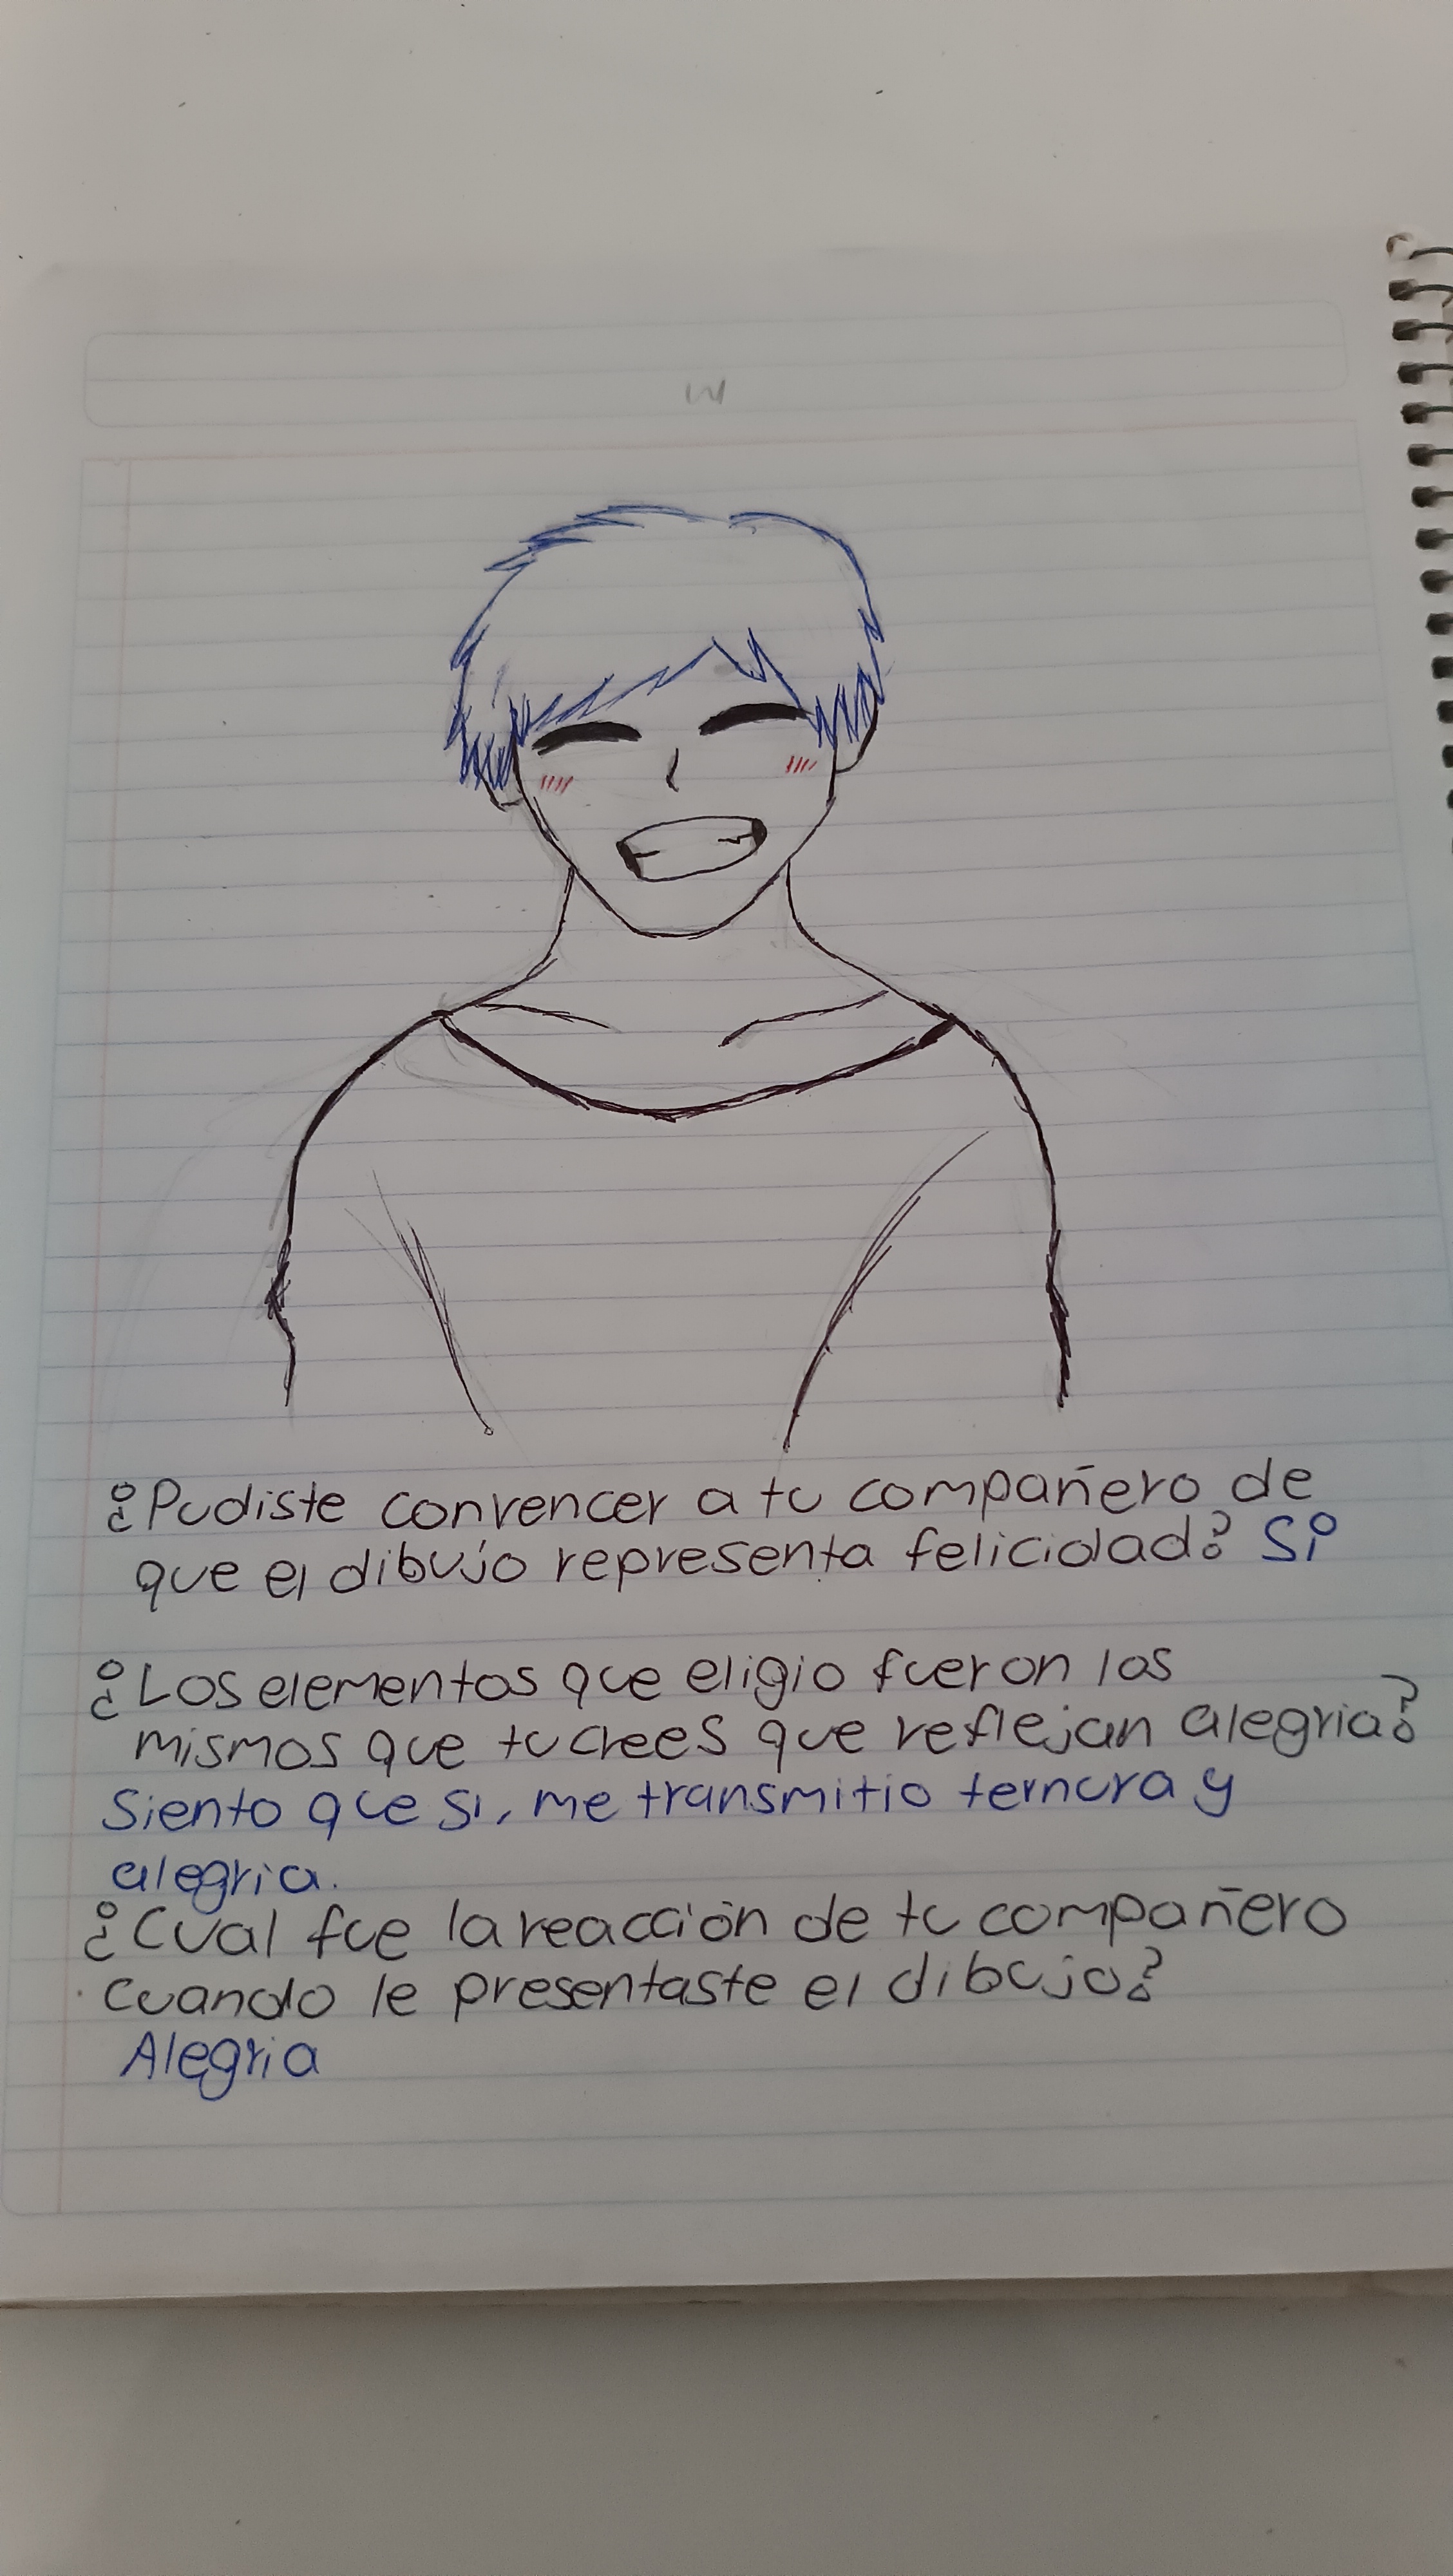 ¿Pudiste convencer a tu compañero de
que el dibujo representa felicidad? Si
¿Los elementos que eligio fueron los
mismos que tu crees que reflejan alegria?
Siento que si, me transmitio ternura y
alegria.
¿Cual fue la reacción de tu compañero
cuando le presentaste el dibujo?
Alegria